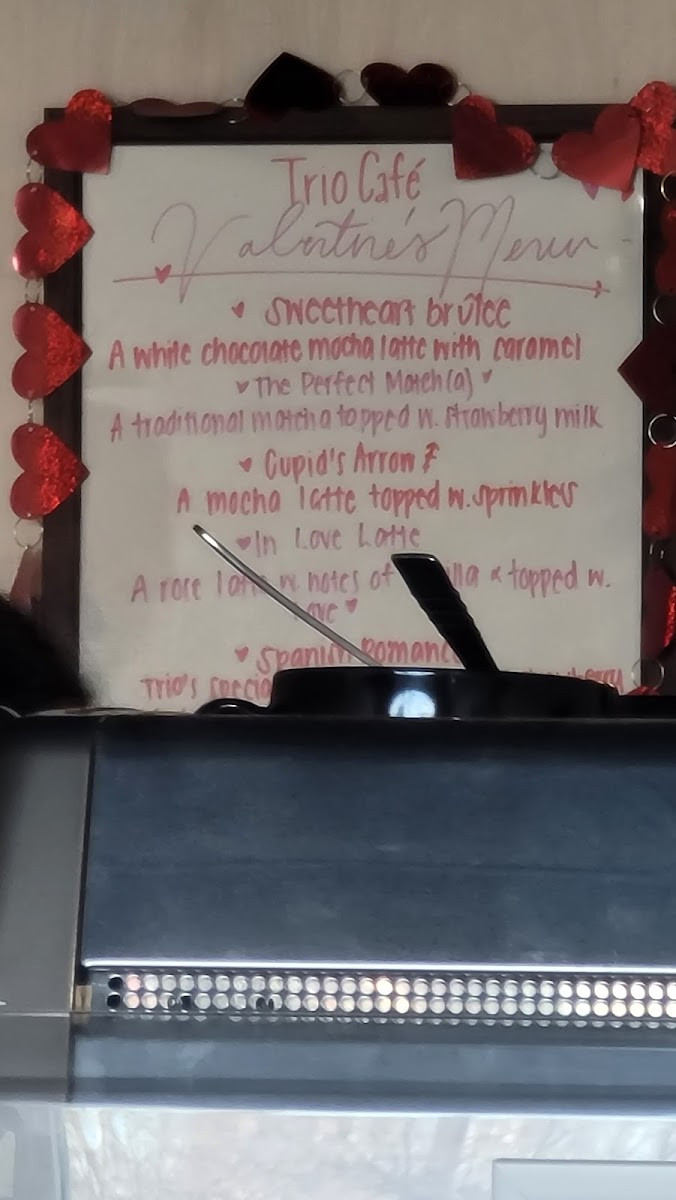 Trio Café
Valentine's Menu
sweetheart brûlée
A white chocolate mocha latte with caramel
The Perfect Match(a)
A traditional matcha topped w. strawberry milk
Cupid's Arrow
A mocha latte topped w. sprinkles
In Love Latte
A rose latte w. notes of & topped w.
Spanish Romance
Trio's